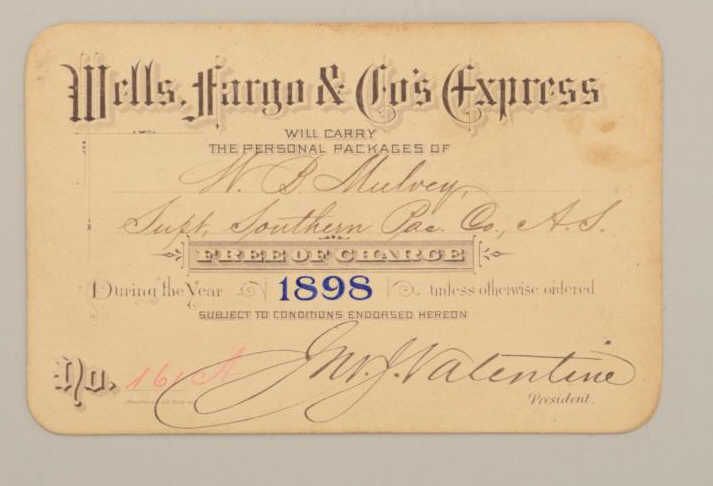 Wells, Fargo & Co's Express
WILL CARRY
THE PERSONAL PACKAGES OF
W. B Mulvey,
Supt. Southern Pac. Co., A. S.
FREE OF CHARGE
During the Year 1898 unless otherwise ordered
SUBJECT TO CONDITIONS ENDORSED HEREON
No. 161 A Jno. J. Valentine
President.